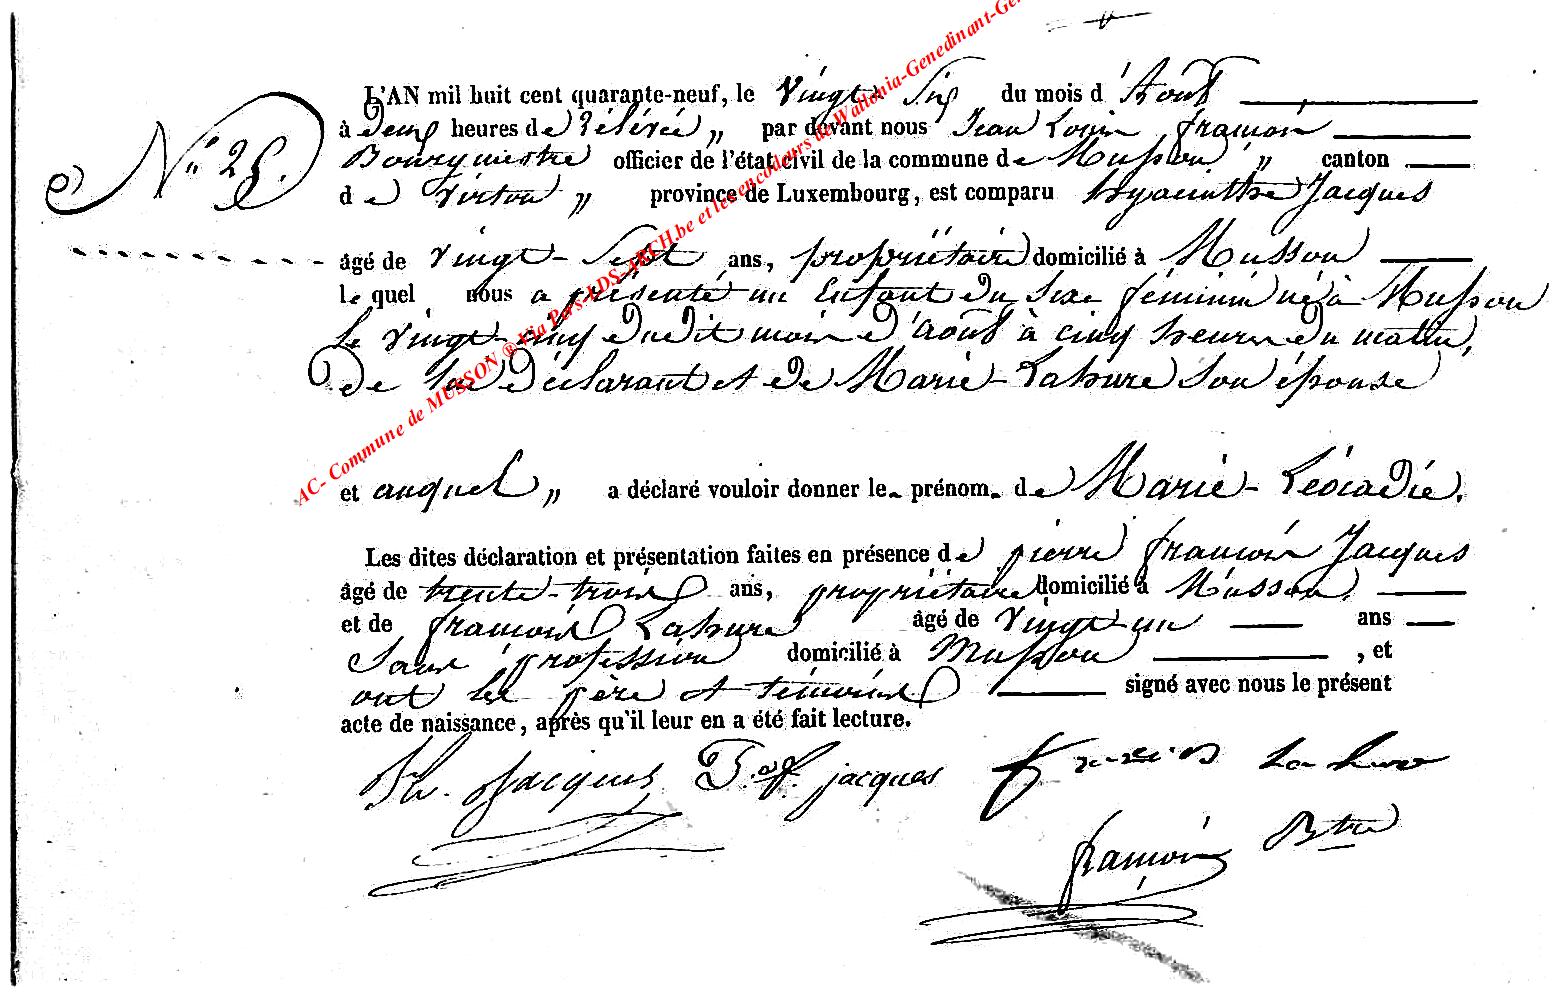 L'AN mil huit cent quarante-neuf, le Vingt-Six du mois d'Août
à Deux heures de Rélévée „ par devant nous Jean Louis françois
Bourgmestre officier de l'état civil de la commune de Musson „ canton
N° 25.
de Virton „ province de Luxembourg, est comparu hyacinthe Jacques
âgé de Vingt-Sept ans, propriétaire domicilié à Musson
le quel nous a présenté un Enfant du Sexe féminin né à Musson
le Vingt-cinq dudit mois d'août à cinq heures du matin,
de lui déclarant et de Marie-Lahure Son épouse
et auquel „ a déclaré vouloir donner les prénoms de Marie-Léocadie.
Les dites déclaration et présentation faites en présence de pierre françois Jacques
âgé de trente-trois ans, propriétaire domicilié à Musson,
et de françois Lahure âgé de Vingt un ans
Sans profession domicilié à Musson , et
ont les père et témoins signé avec nous le présent
acte de naissance, après qu'il leur en a été fait lecture.
Jacques P. f. jacques francois La hure
françois Btre
AC- Commune de MUSSON ® via Pers-LDS-ARCH.be et les encodeurs de Wallonia-Genedinant-Ge